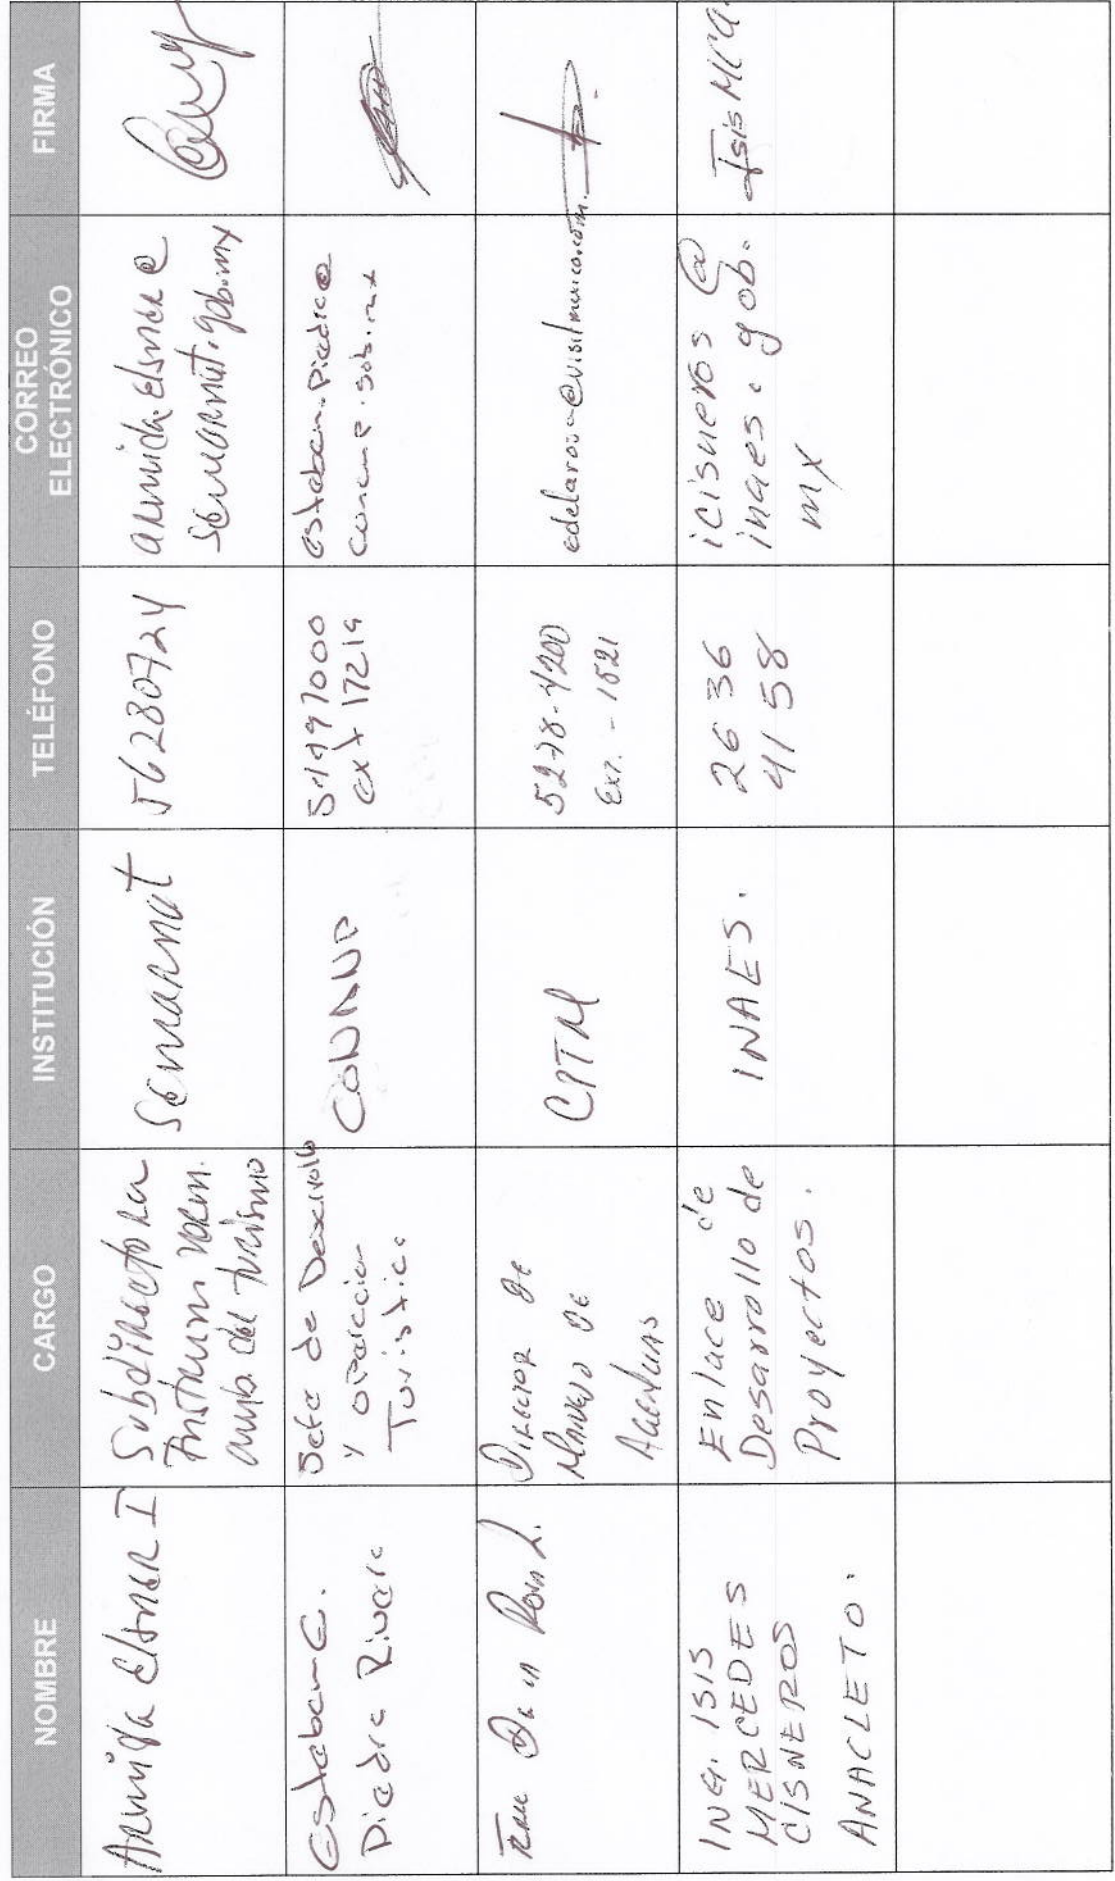 NOMBRE CARGO INSTITUCIÓN TELÉFONO CORREO ELECTRÓNICO FIRMA
Armida Elsner I
Subdirectora
Instrum. norm.
amb. del turismo
Semarnat
56280724
armida.elsner@
semarnat.gob.mx
Esteban E.
Piedra Rivera
Jefe de Desarrollo
y operación
Turística
CONANP
54497000
ext 17219
esteban.piedra@
conanp.gob.mx
De la Rosa L.
Director de
Manejo de
Agencias
CPTM
5278-4200
Ext. - 1521
edelarosa@visitmexico.com.
ING. ISIS
MERCEDES
CISNEROS
ANACLETO.
Enlace de
Desarrollo de
Proyectos.
INAES.
26 36
41 58
icisneros @
inaes. gob.
mx
Isis MCA.